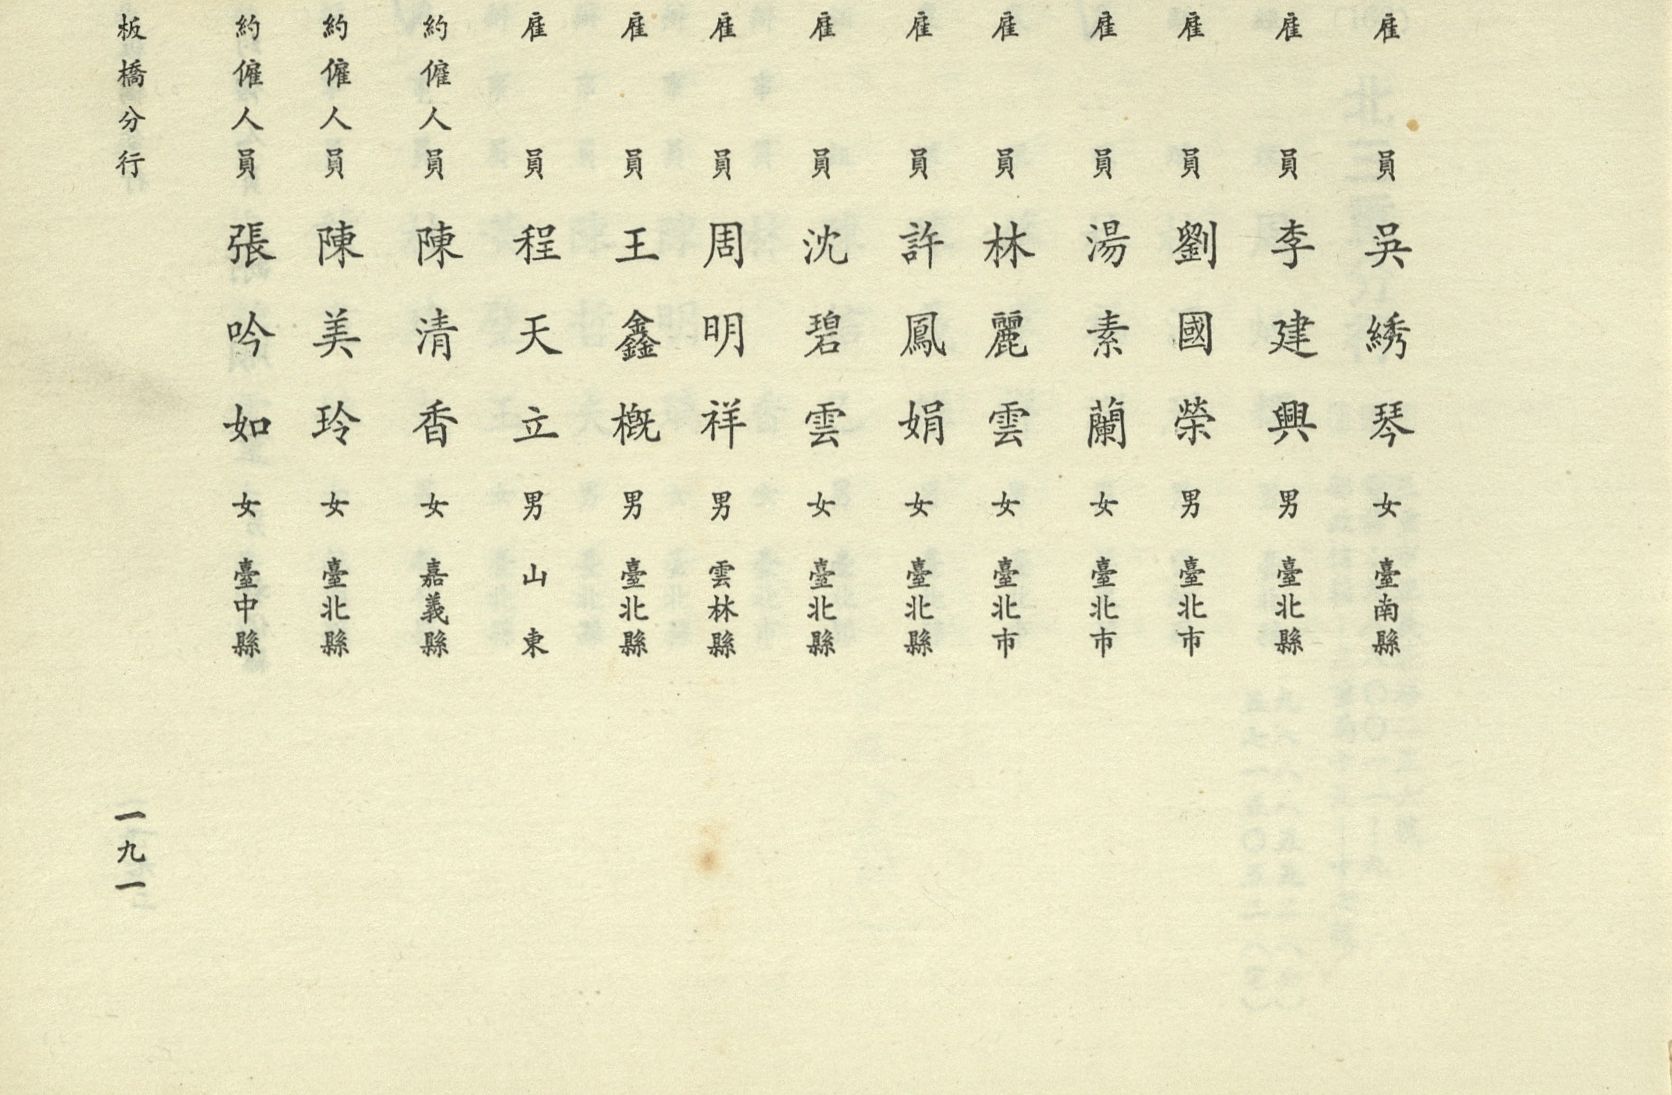 雇員 吳綉琴 女 臺南縣
雇員 李建興 男 臺北縣
雇員 劉國榮 男 臺北市
雇員 湯素蘭 女 臺北市
雇員 林麗雲 女 臺北市
雇員 許鳳娟 女 臺北縣
雇員 沈碧雲 女 臺北縣
雇員 周明祥 男 雲林縣
雇員 王鑫概 男 臺北縣
雇員 程天立 男 山東
約僱人員 陳清香 女 嘉義縣
約僱人員 陳美玲 女 臺北縣
約僱人員 張吟如 女 臺中縣
板橋分行 一九一